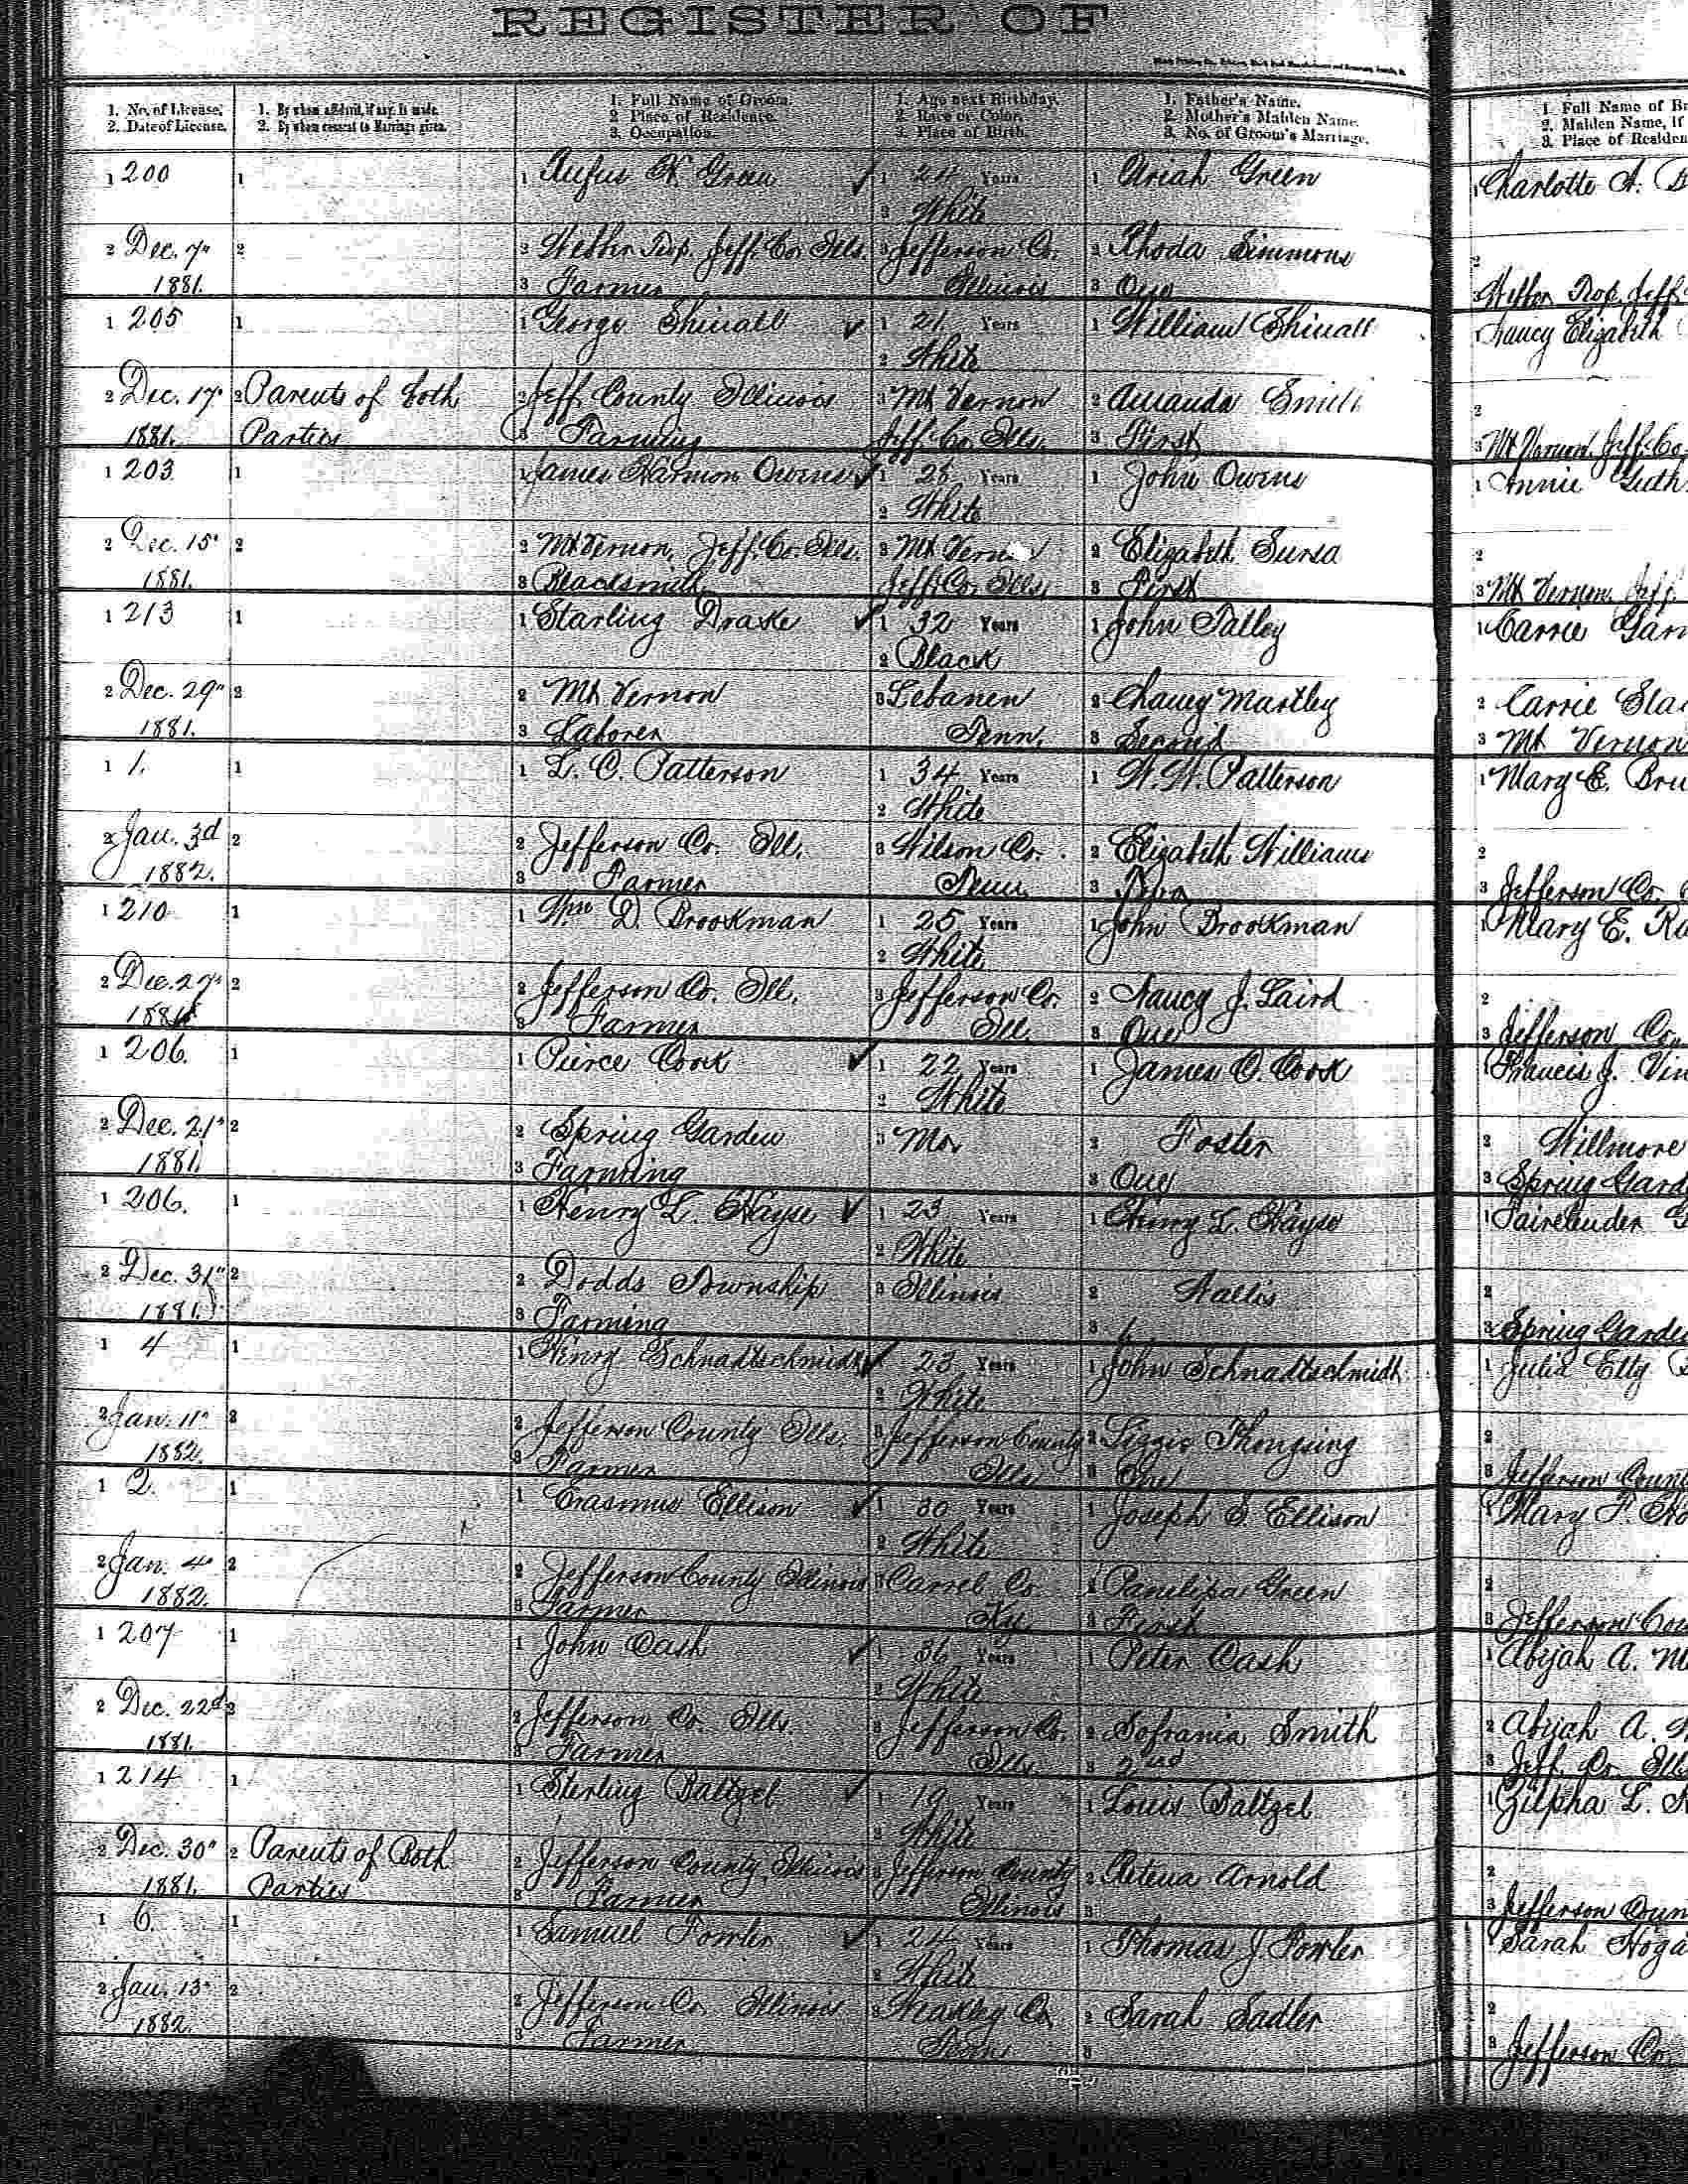 REGISTER OF
1. No. of License.
2. Date of License.
1. By whom affidavit, if any, is made.
2. By whom consent to Marriage given.
1. Full Name of Groom.
2 Place of Residence.
3. Occupation.
1. Age next Birthday.
2. Race or Color.
3. Place of Birth.
1. Father's Name.
2. Mother's Maiden Name.
3. No. of Groom's Marriage.
1. Full Name of Br
2. Maiden Name, if
3. Place of Residen
1 200 1 1 Rufus H. Green 1 24 Years 1 Uriah Green 1 Charlotte A.
2 White
2 Dec. 7" 2 2 Webber Trop. Jeff. Co. Ills. 3 Jefferson Co. 2 Rhoda Simmons 2
1881. 3 Farmer Illinois 3 One 3 Webber Trop. Jeff
1 205 1 1 George Shinall 1 21 Years 1 William Shinall 1 Nancy Elizabeth
2 White
2 Dec. 17" 2 Parents of both 2 Jeff County Illinois 3 Mt Vernon 2 Amanda Smith 2
1881. Parties 3 Farming Jeff. Co. Ills. 3 First 3 Mt Vernon, Jeff. Co.
1 203 1 1 James Harmon Owens 1 25 Years 1 John Owens 1 Annie
2 White
2 Dec. 15" 2 2 Mt Vernon, Jeff. Co. Ills. 3 Mt Vern 2 Elizabeth Sursa 2
1881. 3 Blacksmith Jeff. Co. Ills. 3 First 3 Mt Vernon, Jeff.
1 213 1 1 Starling Drake 1 32 Years 1 John Talley 1 Carrie Gan
2 Black
2 Dec. 29" 2 2 Mt Vernon 3 Lebanen 2 Chancy Martley 2 Carrie Sla
1881. 3 Laborer Tenn. 3 Second 3 Mt Vernon
1 1. 1 1 L. C. Patterson 1 34 Years 1 W. W. Patterson 1 Mary E. Bru
2 White
2 Jan. 3d 2 2 Jefferson Co. Ill. 3 Wilson Co. 2 Elizabeth Williams 2
1882. 3 Farmer Tenn. 3 3 Jefferson Co.
1 210 1 1 Wm D. Brookman 1 25 Years 1 John Brookman 1 Mary E. Ra
2 White
2 Dec. 27" 2 2 Jefferson Co. Ill. 3 Jefferson Co. 2 Nancy J. Laird 2
1881 3 Farmer Ill. 3 One 3 Jefferson Co.
1 206. 1 1 Peirce Cook 1 22 Years 1 James O. Cook 1 Francis J. Vin
2 White
2 Dec. 21" 2 2 Spring Garden 3 Mo. 2 Foster 2 Willmore
1881. 3 Farming 3 One 3 Spring Gard
1 206. 1 1 Henry L. Hayse 1 23 Years 1 Henry L. Hayse 1
2 White
2 Dec. 31" 2 2 Dodds Township 3 Illinois 2 Wallis 2
1881. 3 Farming 3 1. 3 Spring Garde
1 4 1 1 Henry Schnadtschmidt 1 23 Years 1 John Schnadtschmidt 1 Julia Etty
2 White
2 Jan. 11" 2 2 Jefferson County Ills. 3 Jefferson County 2 2
1882. 3 Farmer Ills 3 One 3 Jefferson Count
1 2. 1 1 Erasmus Ellison 1 30 Years 1 Joseph S Ellison 1 Mary F. Ho
2 White
2 Jan. 4" 2 2 Jefferson County Illinois 3 Carrel Co. 2 Pamelipa Green 2
1882. 3 Farmer Ky. 3 First 3 Jefferson Cou
1 207 1 1 John Cash 1 36 Years 1 Peter Cash 1 Abijah A. M
2 White
2 Dec. 22d 2 2 Jefferson Co. Ills. 3 Jefferson Co. 2 Sofrania Smith 2 Abijah A.
1881. 3 Farmer Ills. 3 2nd 3 Jeff. Co. Ills
1 214 1 1 Sterling Baltzel 1 19 Years 1 Louis Baltzel 1 Zilpha L.
2 White
2 Dec. 30" 2 Parents of Both 2 Jefferson County, Illinois 3 Jefferson County 2 Arnold 2
1881. Parties 3 Farmer Illinois 3 3 Jefferson Coun
1 6. 1 1 Samuel Fowler 1 24 Years 1 Thomas J Fowler 1 Sarah Hoga
2 White
2 Jan. 13" 2 2 Jefferson Co. Illinois 3 Weakley Co 2 Sarah Sadler 2
1882. 3 Farmer Tenn 3 3 Jefferson Co.